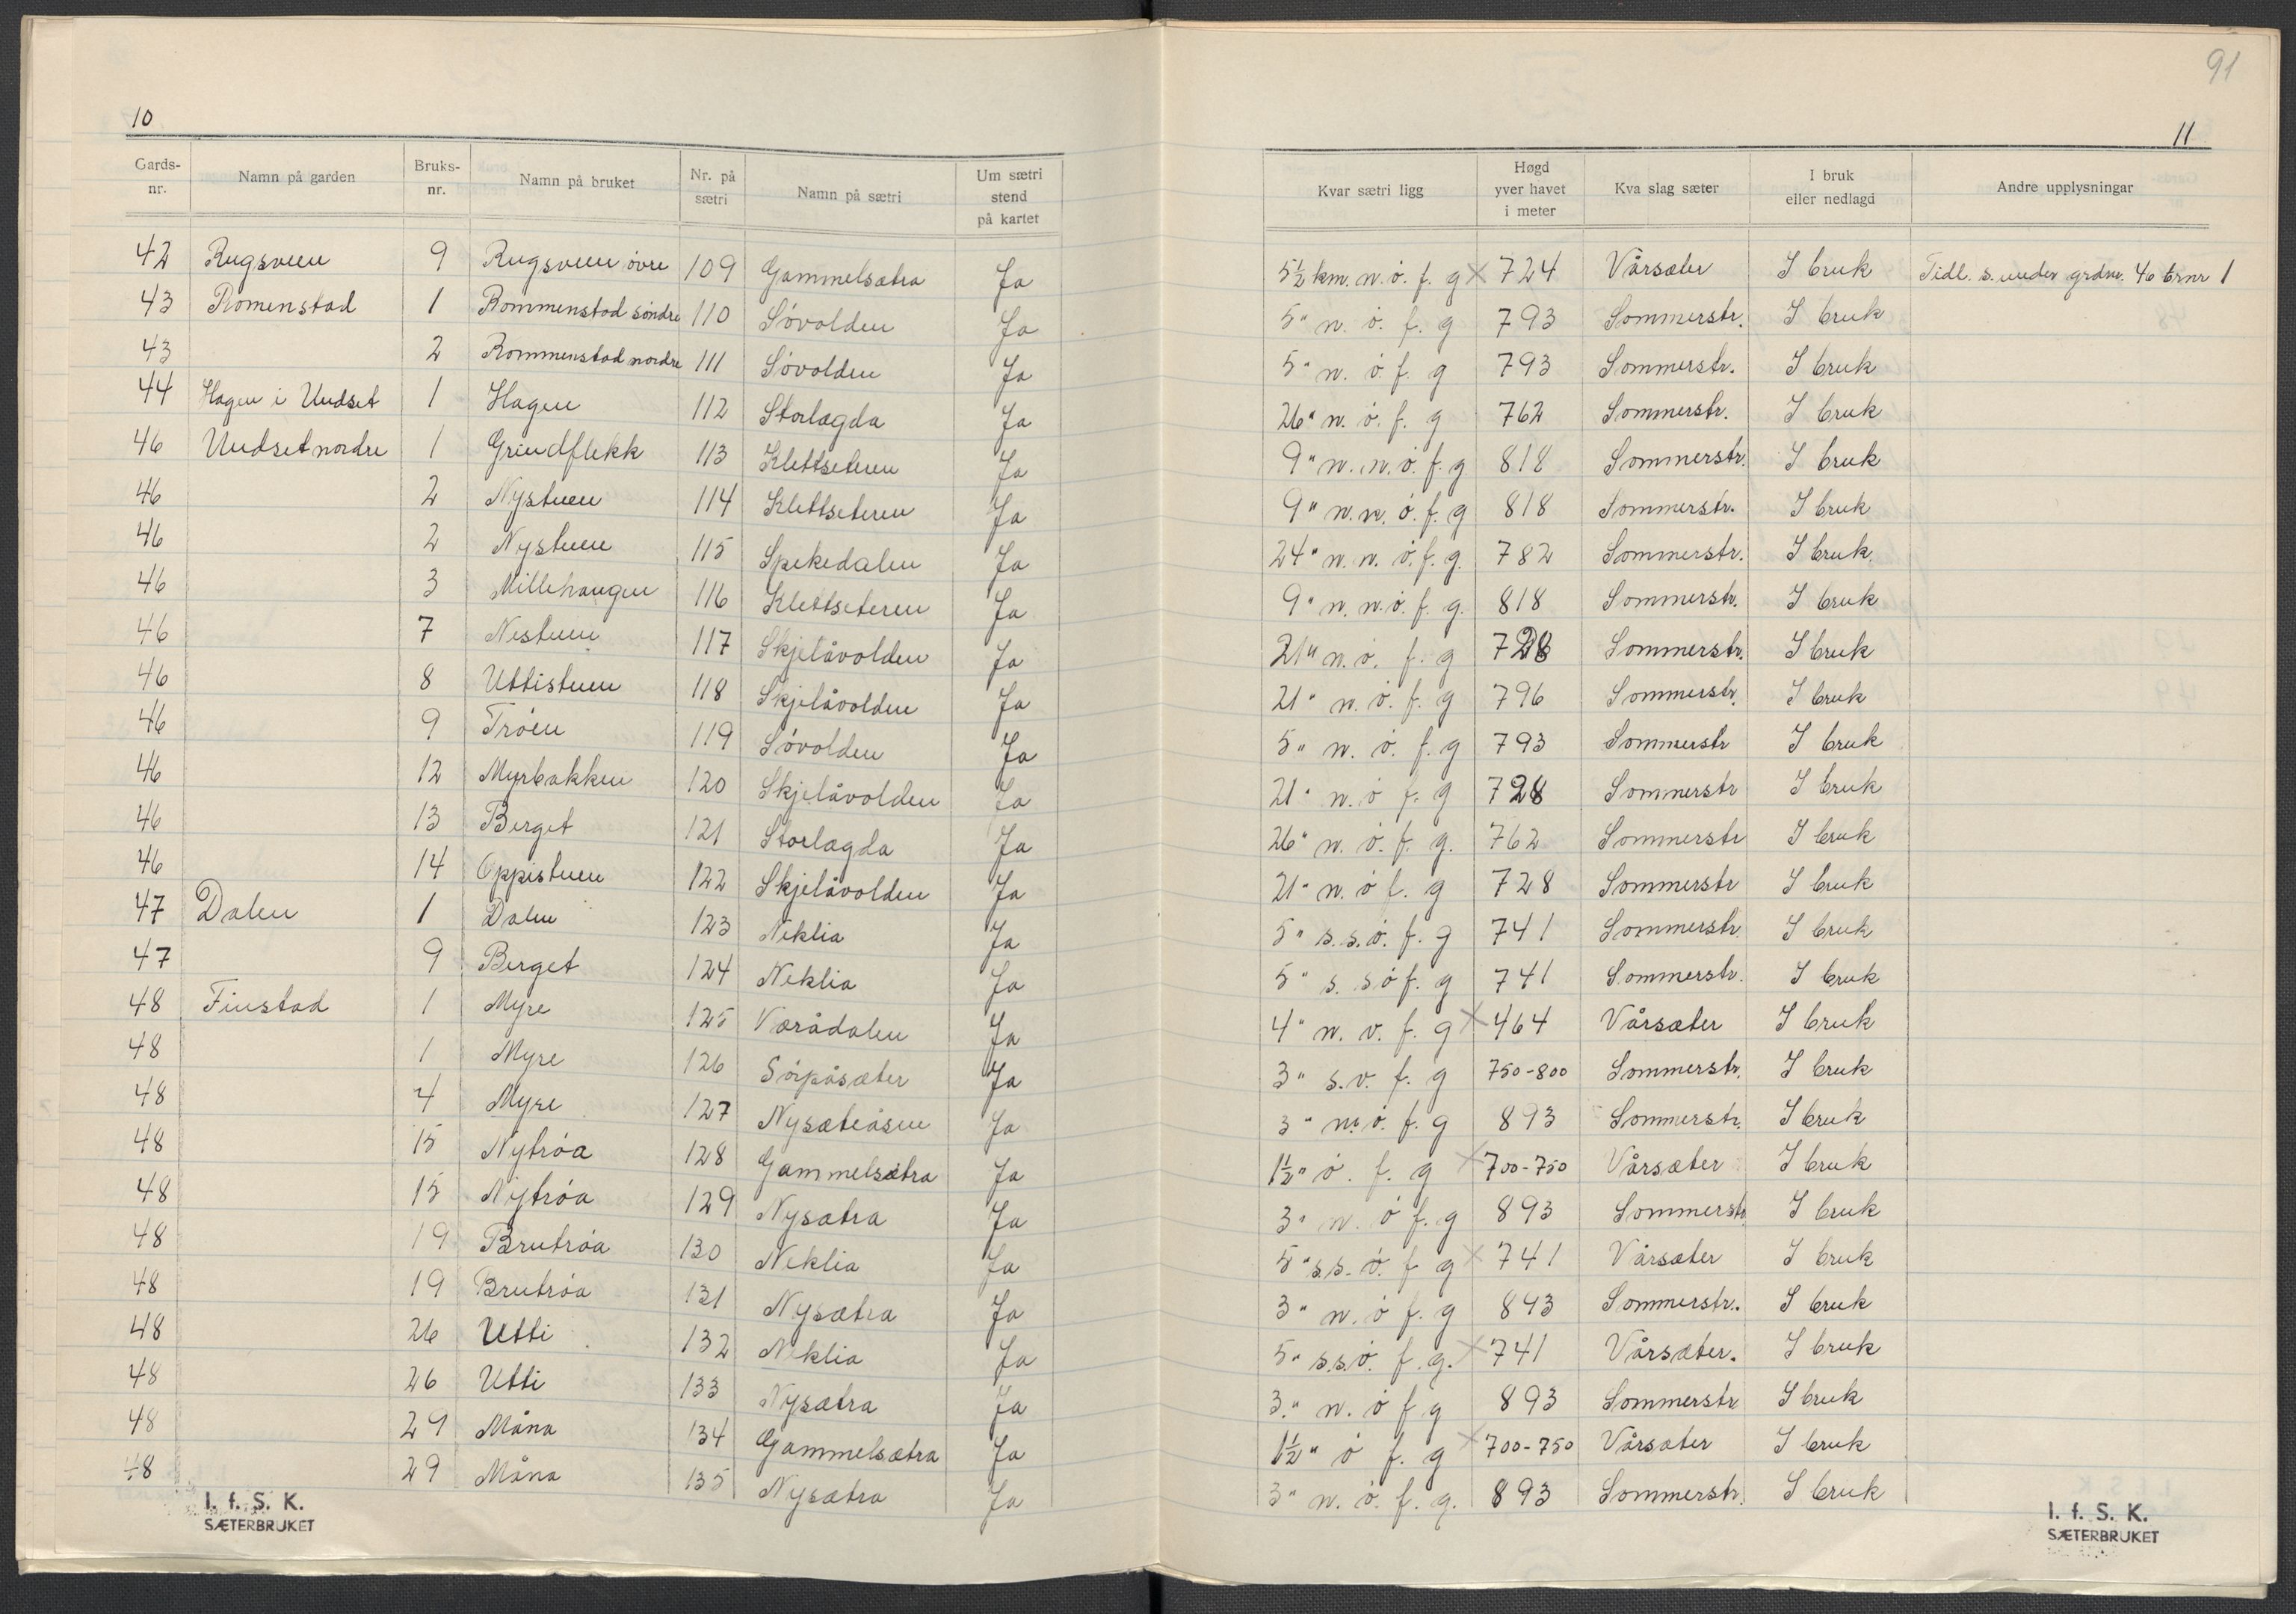 91
10
11
Gards-nr. Namn på garden Bruks-nr. Namn på bruket Nr. på sætri Namn på sætri Um sætri stend på kartet Kvar sætri ligg Høgd yver havet i meter Kva slag sæter I bruk eller nedlagd Andre upplysningar
42 Rugsveen 9 Rugsveen övre 109 Gammelsætra Ja 5½ km. n. ö. f. g × 724 Vårsæter I bruk Tidl. s. under grdnr. 46 brnr 1
43 Romenstad 1 Rommenstad söndre 110 Sövolden Ja 5 " n. ö. f. g 793 Sommerstr. I bruk
43 2 Rommenstad nordre 111 Sövolden Ja 5 " n. ö. f. g 793 Sommerstr. I bruk
44 Hagen i Undset 1 Hagen 112 Storlægda Ja 26 " n. ö. f. g 762 Sommerstr. I bruk
46 Undset nordre 1 Grindflekk 113 Klettseteren Ja 9 " n. n. ö. f. g 818 Sommerstr. I bruk
46 2 Nystuen 114 Klettseteren Ja 9 " n. n. ö. f. g 818 Sommerstr. I bruk
46 2 Nystuen 115 Spekedalen Ja 24 " n. n. ö. f. g. 782 Sommerstr. I bruk
46 3 Millehaugen 116 Klettseteren Ja 9 " n. n. ö. f. g. 818 Sommerstr. I bruk
46 7 Nestuen 117 Skjelåvolden Ja 21 " n. ö. f. g 728 Sommerstr. I bruk
46 8 Uttistuen 118 Skjelåvolden Ja 21 " n. ö. f. g 796 Sommerstr. I bruk
46 9 Tröen 119 Sövolden Ja 5 " n. ö. f. g 793 Sommerstr I bruk
46 12 Myrbakken 120 Skjelåvolden Ja 21 " n. ö f. g 728 Sommerstr I bruk
46 13 Berget 121 Storlægda Ja 26 " n. ö. f. g. 762 Sommerstr I bruk
46 14 Oppistuen 122 Skjelåvolden Ja 21 " n. ö f. g 728 Sommerstr I bruk
47 Dalen 1 Dalen 123 Neklia Ja 5 " s. s. ö. f. g 741 Sommerstr. I bruk
47 9 Berget 124 Neklia Ja 5 " s. s ö f. g 741 Sommerstr. I bruk
48 Finstad 1 Myre 125 Værådalen Ja 4 " n. v. f. g × 464 Vårsæter I bruk
48 1 Myre 126 Sörpåsæter Ja 3 " s. v. f. g 750-800 Sommerstr. I bruk
48 4 Myre 127 Nysæteåsen Ja 3 " n. ö. f. g 893 Sommerstr. I bruk
48 15 Nytröa 128 Gammelsætra Ja 1½ " ö. f. g × 700-750 Vårsæter I bruk
48 15 Nytröa 129 Nysætra Ja 3 " n. ö f. g 893 Sommerstr I bruk
48 19 Brutröa 130 Neklia Ja 5 " s. s. ö. f. g × 741 Vårsæter I bruk
48 19 Brutröa 131 Nysætra Ja 3 " n. ö f. g 843 Sommerstr. I bruk
48 26 Utti 132 Neklia Ja 5 " s. s. ö. f. g. × 741 Vårsæter. I bruk
48 26 Utti 133 Nysætra Ja 3 " n. ö f g 893 Sommerstr I bruk
48 29 Måna 134 Gammelsætra Ja 1½ " ö f. g × 700-750 Vårsæter I bruk
48 29 Måna 135 Nysætra Ja 3 " n. ö. f. g. 893 Sommerstr. I bruk
I. f. S. K.
SÆTERBRUKET
I. f. S. K.
SÆTERBRUKET